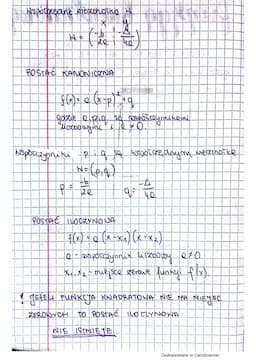 Współrzędne wierzchołka W
x y
W = (-b/2a ; -Δ/4a)
POSTAĆ KANONICZNA
f(x) = a (x-p)² + q
gdzie a, p i q są współczynnikami
liczbowymi i a ≠ 0.
Współczynniki p i q są współrzędnymi wierzchołka
W = (p, q)
p = -b/2a q = -Δ/4a
POSTAĆ ILOCZYNOWA
f(x) = a (x-x₁) (x-x₂)
a - współczynnik liczbowy a ≠ 0
x₁, x₂ - miejsce zerowe funkcji f(x)
! JEŻELI FUNKCJA KWADRATOWA NIE MA MIEJSC
ZEROWYCH TO POSTAĆ ILOCZYNOWA
NIE ISTNIEJE
Zeskanowane w CamScanner